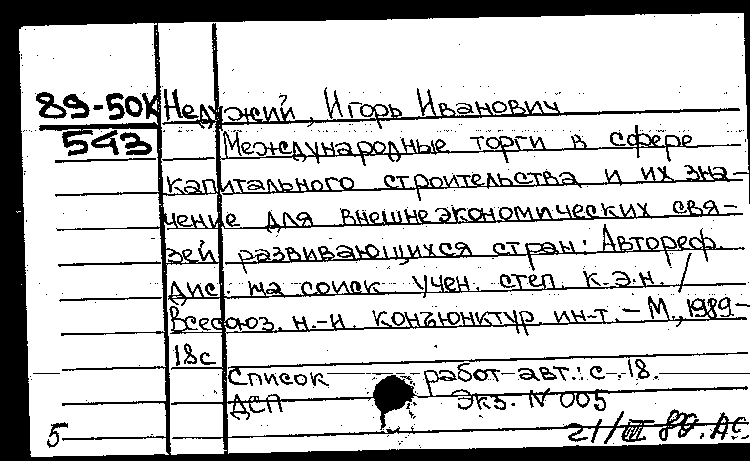 89-50К Недужий, Игорь Иванович
543 Международные торги в сфере
капитального строительства и их зна-
чение для внешнеэкономических свя-
зей развивающихся стран: Автореф.
дис. на соиск учен. степ. к.э.н. /
Всесоюз. н.-и. конъюнктур. ин-т. - М., 1989-
18с
Список работ авт.: с. 18.
ДСП Экз. N 005
5 21/III 89. АС